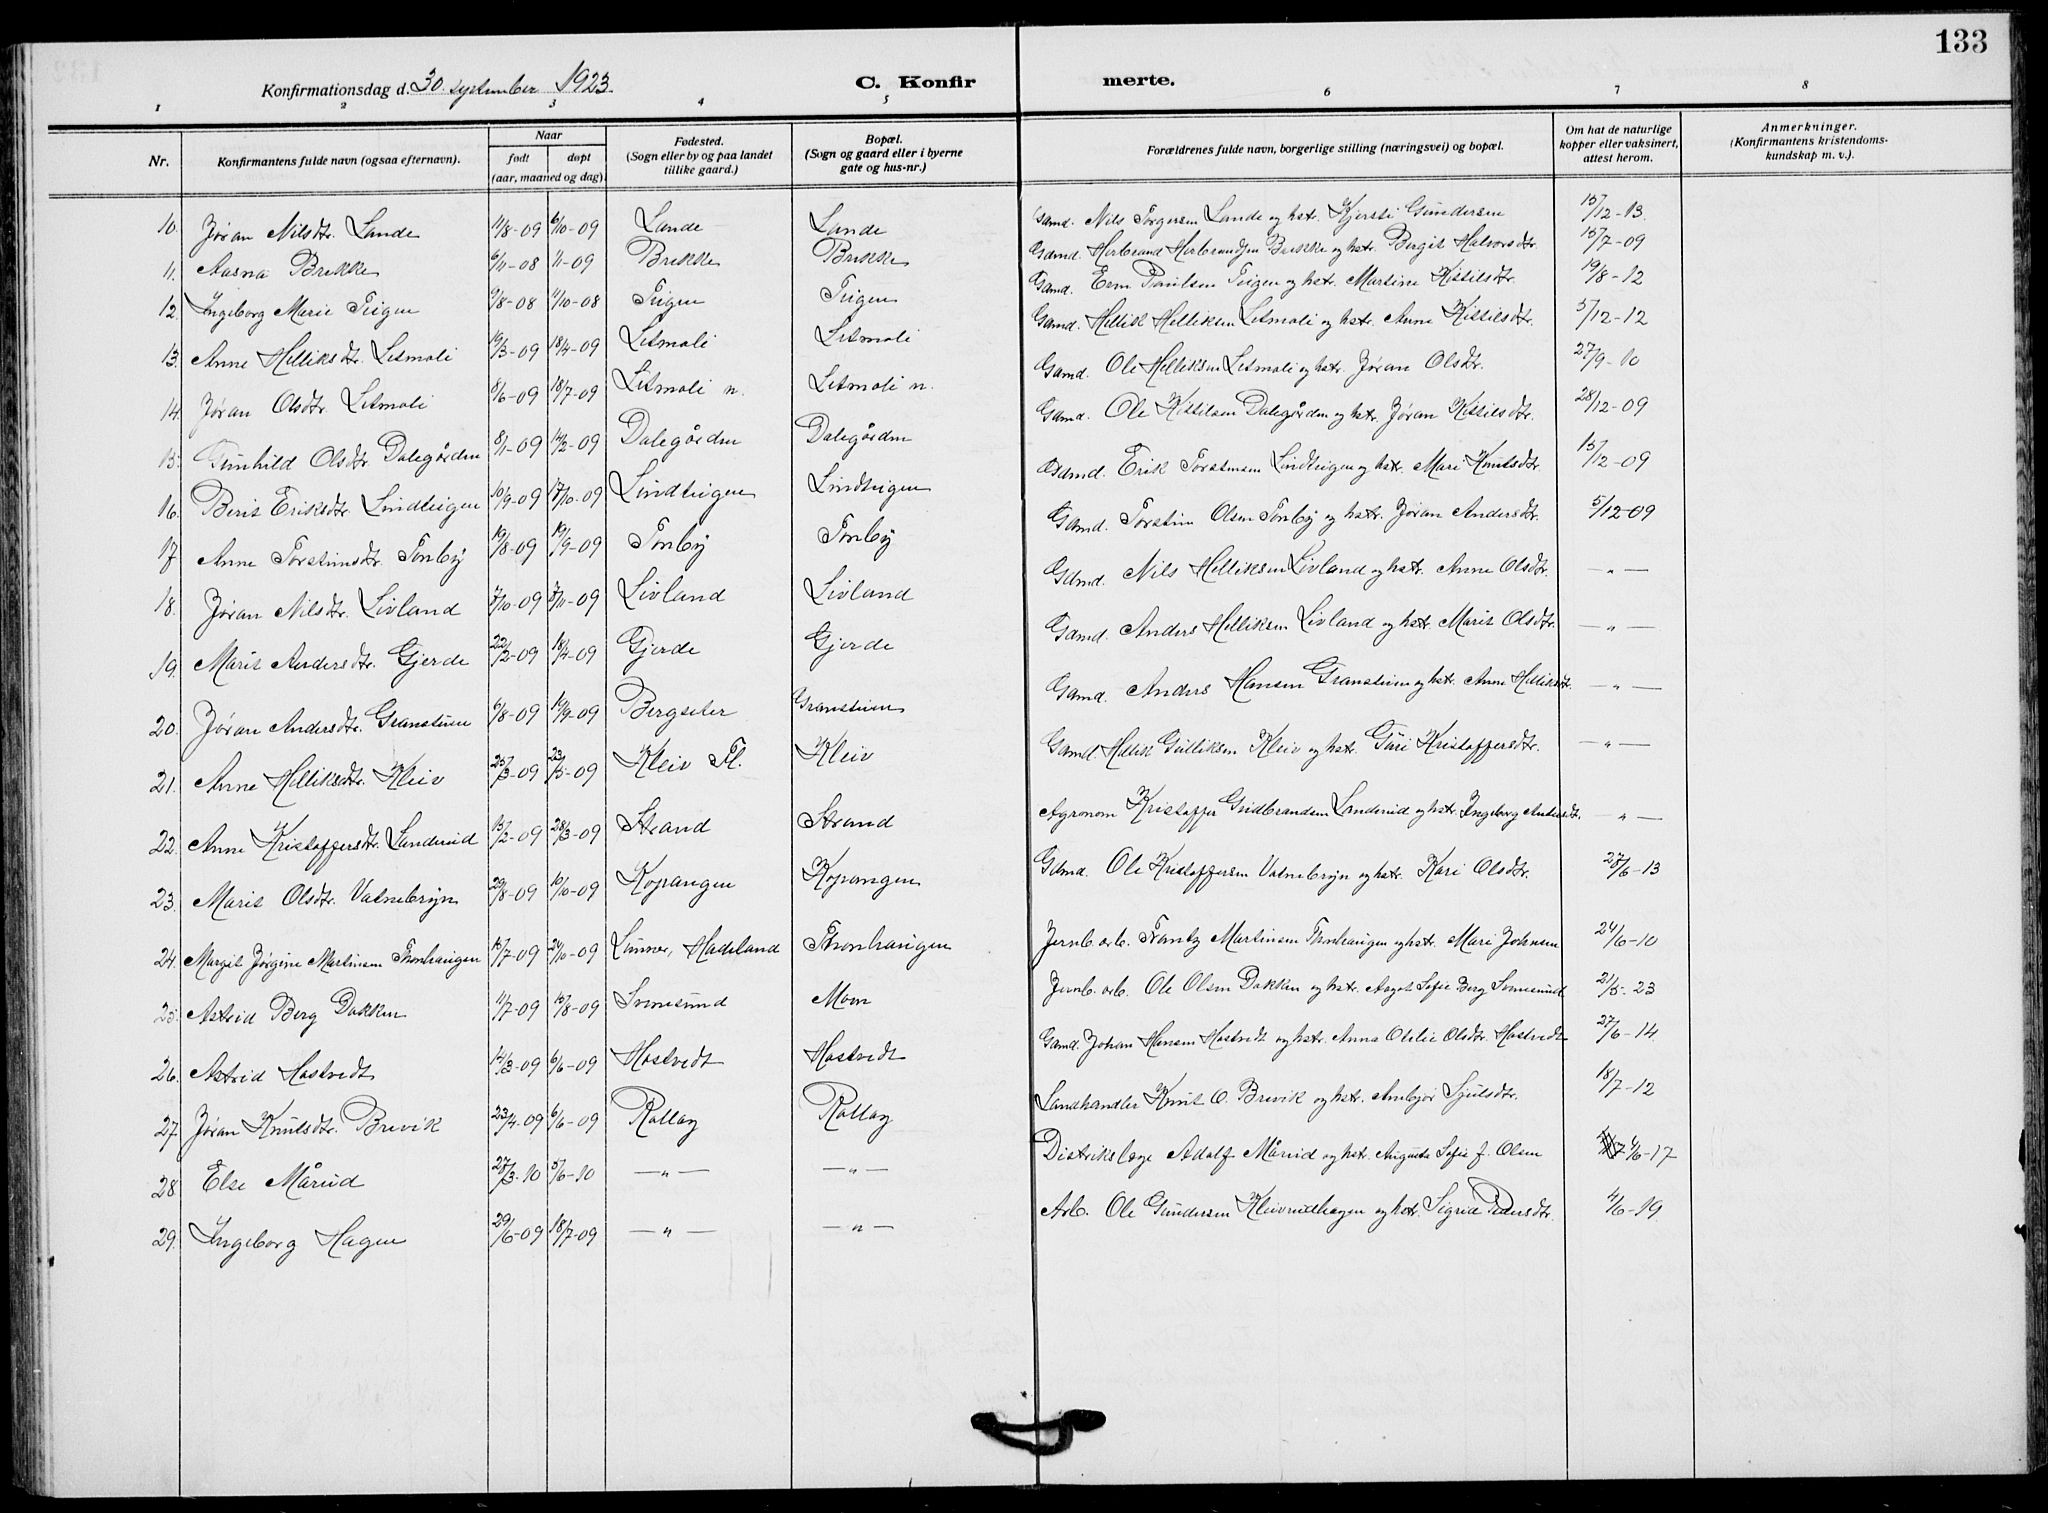 133
Konfirmationsdag d. 30. september 1923. C. Konfir merte.
1 2 3 4 5 6 7 8
Nr. Konfirmantens fulde navn (ogsaa efternavn). Naar født døpt (aar, maaned og dag). Fødested. (Sogn eller by og paa landet tillike gaard.) Bopæl. (Sogn og gaard eller i byerne gate og hus-nr.) Forældrenes fulde navn, borgerlige stilling (næringsvei) og bopæl. Om hat de naturlige kopper eller vaksinert, attest herom. Anmerkninger. (Konfirmantens kristendoms-kundskap m. v.).
10. Jøran Nilsdtr. Lande 11/8-09 6/10-09 Lande Lande Gamd. Nils Torgersen Lande og hstr. Kjersti Gundersen 15/12-13.
11. Aasna Brekke 6/11-08 1/1-09 Brekke Brekke Gdmd. Herbrand Herbrandsen Brekke og hstr. Bergit Halvorsdtr. 15/7-09
12. Ingeborg Marie Teigen 9/8-08 11/10-08 Teigen Teigen Gamd. Even Paulsen Teigen og hstr. Martine Kittilsdtr. 19/8-12
13. Anne Helliksdtr. Letmoli 19/3-09 18/4-09 Letmoli Letmoli Gamd. Hellik Helliksen Letmoli og hstr. Anne Kittilsdtr. 5/12-12
14. Jøran Olsdtr. Letmoli 8/6-09 18/7-09 Letmoli n. Letmoli n. Gamd. Ole Helliksen Letmoli og hstr. Jøran Olsdtr. 27/9-10
15. Gunhild Olsdtr. Dalegården 8/1-09 14/2-09 Dalegården Dalegården Gamd. Ole Kittilsen Dalegården og hstr. Jøran Kittilsdtr. 28/12-09
16. Berit Eriksdtr. Lindteigen 10/9-09 17/10-09 Lindteigen Lindteigen Gdmd. Erik Torstensen Lindteigen og hstr. Mari Knutsdtr. 15/12-09
17 Anne Torsteinsdtr. Tonby 19/8-09 19/9-09 Tonby Tonby Gamd. Torstein Olsen Tonby og hstr. Jøran Andersdtr. 5/12-09
18. Jøran Nilsdtr. Livland 7/10-09 7/11-09 Livland Livland Gdmd. Nils Helliksen Livland og hstr. Anne Olsdtr. —„—
19. Marit Andersdtr. Gjerde 22/2-09 18/4-09 Gjerde Gjerde Gdmd. Anders Helliksen Livland og hstr. Marit Olsdtr. —„—
20. Jøran Andersdtr. Gransteien 6/8-09 19/9-09 Bergseter Gransteien Gamd. Anders Hansen Gransteien og hstr. Anne Helliksdt. —„—
21. Anne Helliksdtr. Kleiv 25/3-09 23/5-09 Kleiv Fl. Kleiv Gamd. Hellik Gulliksen Kleiv og hstr. Guri Kristoffersdtr. —„—
22. Anne Kristoffersdtr. Landerud 15/2-09 28/3-09 Strand Strand Agronom Kristoffer Gudbrandsen Landerud og hstr. Ingeborg Andersdt. —„—
23. Marit Olsdtr. Vatnebryn 29/8-09 10/10-09 Kopangen Kopangen Gdmd. Ole Kristoffersen Vatnebryn og hstr. Kari Olsdtr. 27/6-13
24. Margit Jørgine Martinsen Thonhaugen 15/7-09 24/10-09 Lunner, Hadeland Thonhaugen Jernb. arb. Frantz Martinsen Thonhaugen og hstr. Mari Johnsen 24/6-10
25. Astrid Berg Dokken 11/7-09 15/8-09 Svinesund Moen Jernb. arb. Ole Olsen Dokken og hstr. Aagot Sofie Berg Svinesund 21/5-23
26. Astrid Hostvedt 14/3-09 6/6-09 Hostvedt Hostvedt Gamd. Johan Hansen Hostvedt og hstr. Anna Otilie Olsdtr. Hostvedt 27/6-14.
27 Jøran Knutsdtr. Brevik 23/4-09 6/6-09 Rollag Rollag Landhandler Knut O. Brevik og hstr. Ambjør Sjulsdtr. 18/7-12
28 Else Mårud 27/3-10 5/6-10 —„— —„— Distrikslæge Adolf Mårud og hstr. Augusta Sofie f. Olsen 4/6-17
29. Ingeborg Hagen 29/6-09 18/7-09 —„— —„— Arb. Ole Gundersen Kleivrudhagen og hstr. Sigrid Pedersdtr. 4/6-19